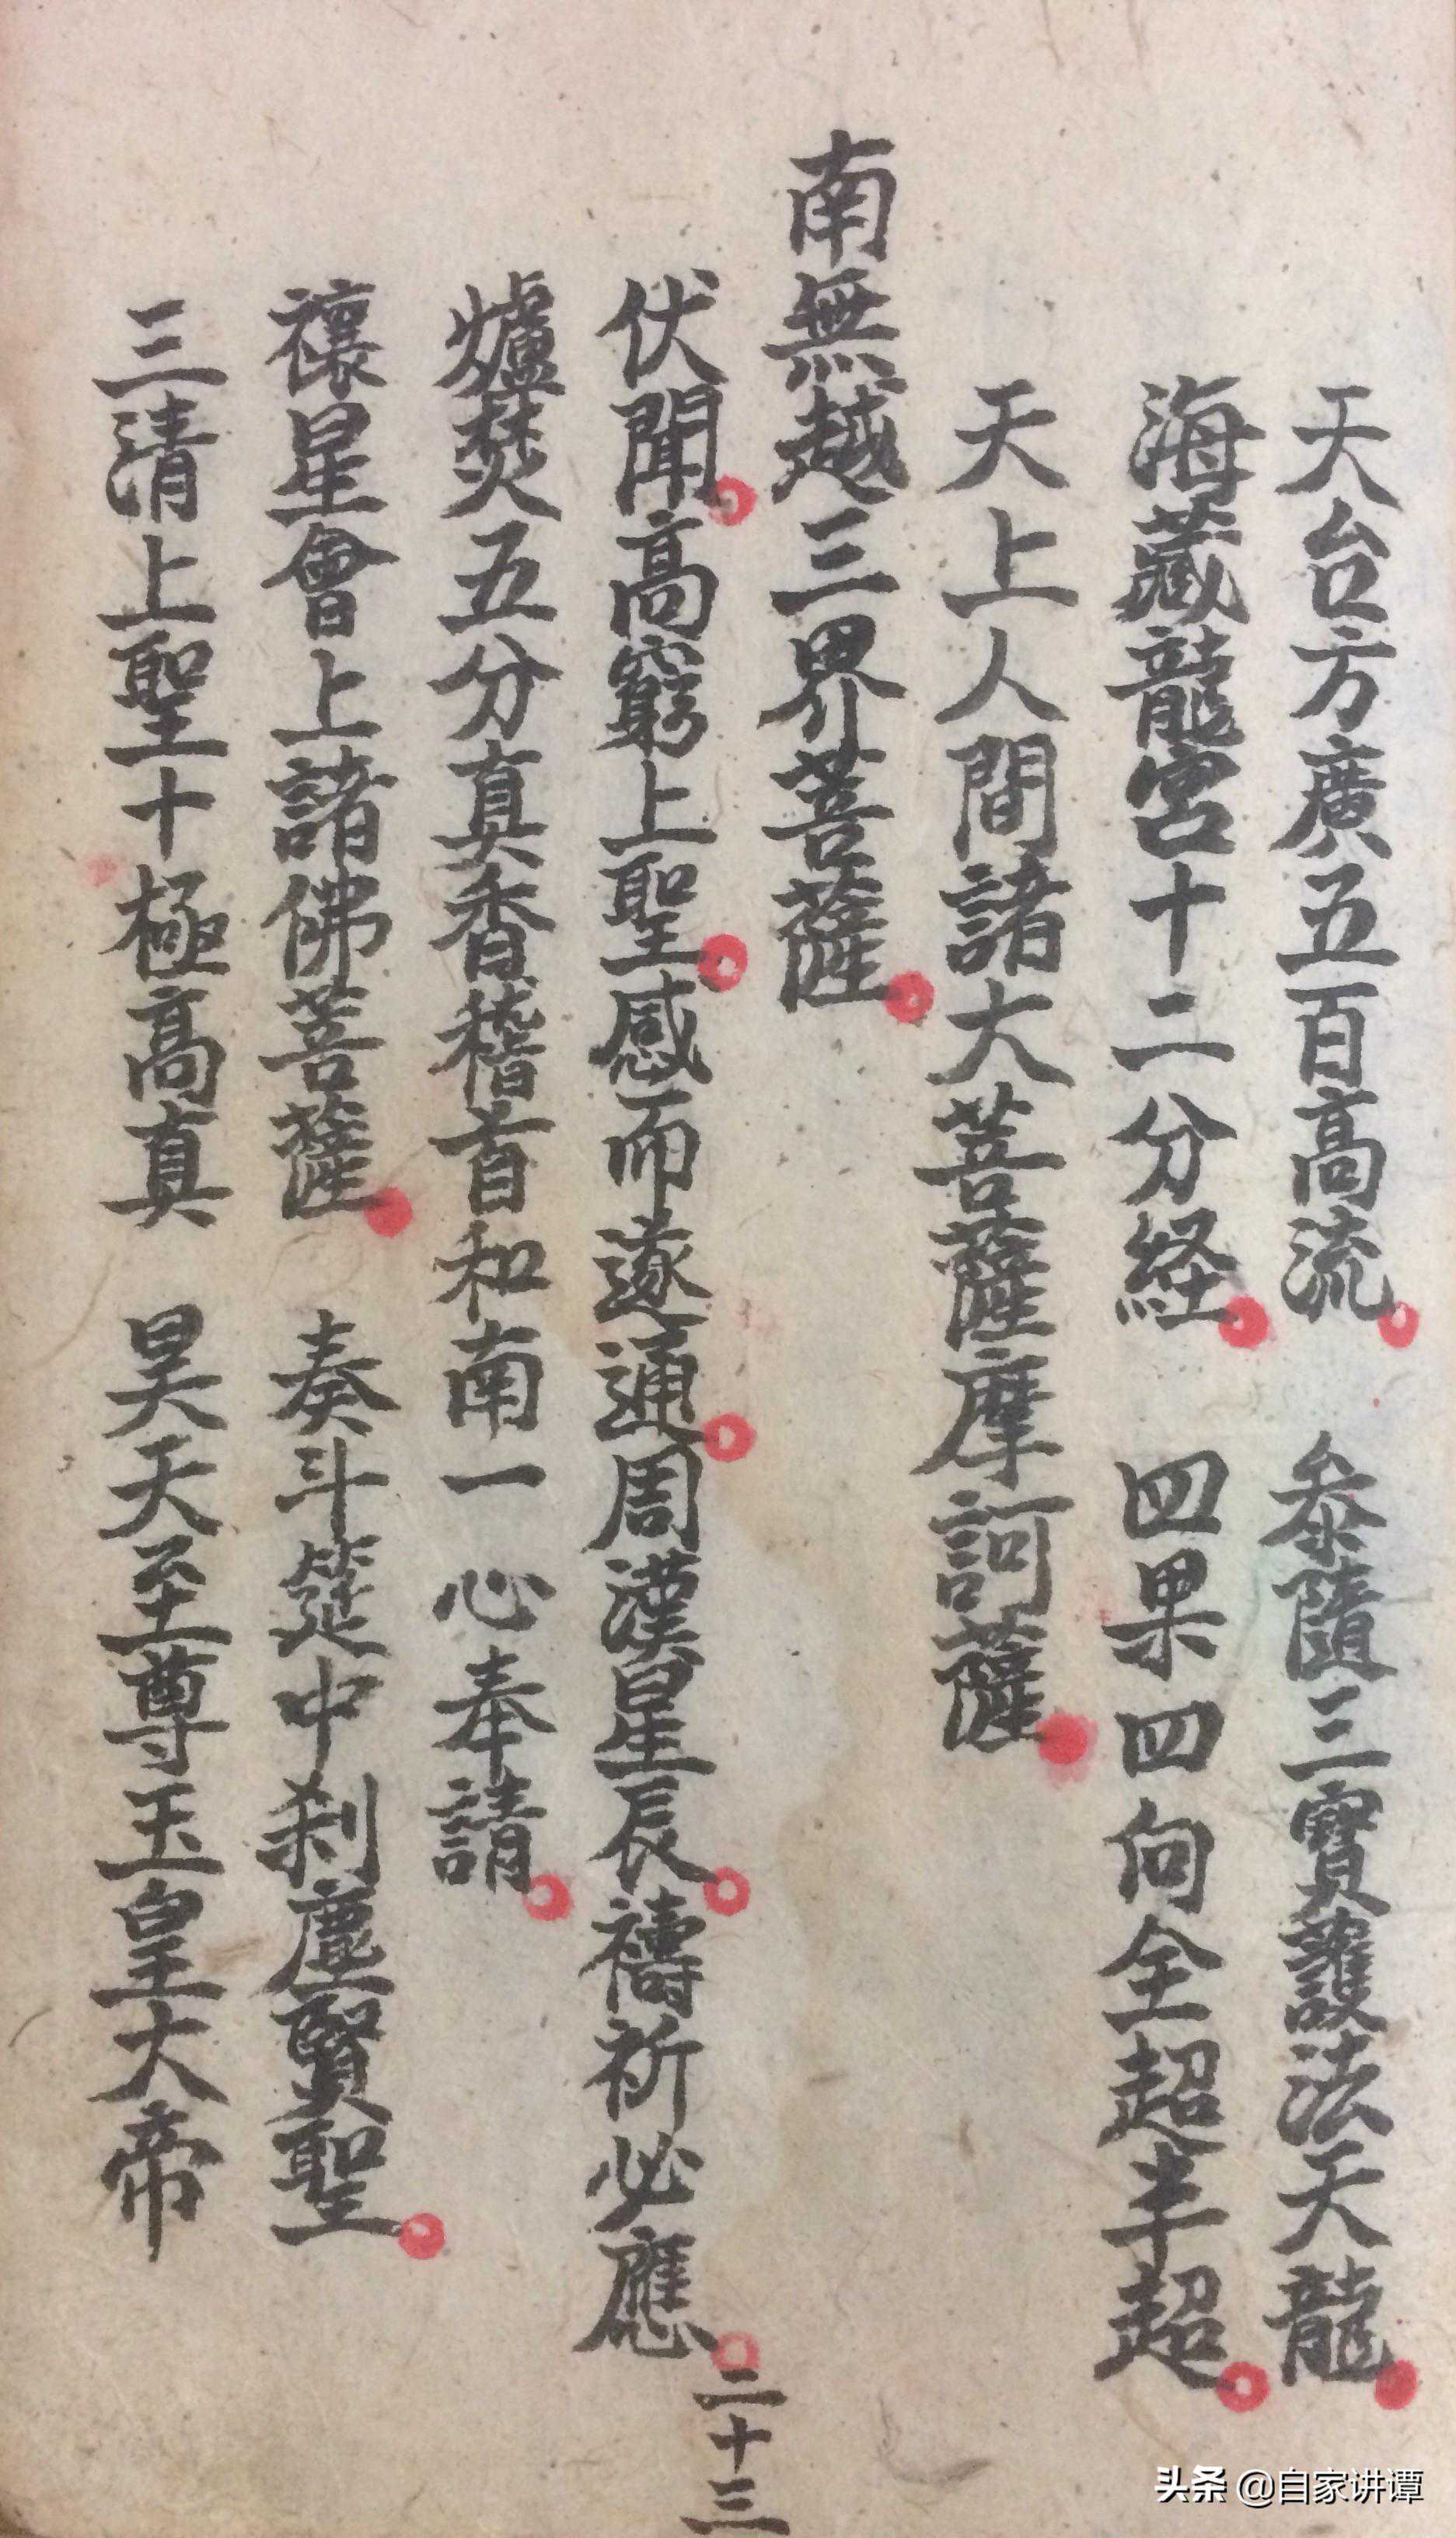 天台方廣五百高流 叅隨三寶護法天龍
海藏龍宮十二分経 四果四向全超半超
天上人間諸大菩薩摩訶薩
南無越三界菩薩
伏聞高窮上聖感而遂通周漢星辰禱祈必應
二十三
爐焚五分真香稽首和南一心奉請
禳星會上諸佛菩薩 奏斗筵中刹塵賢聖
三清上聖十極高真 昊天至尊玉皇大帝
头条 @自家讲谭